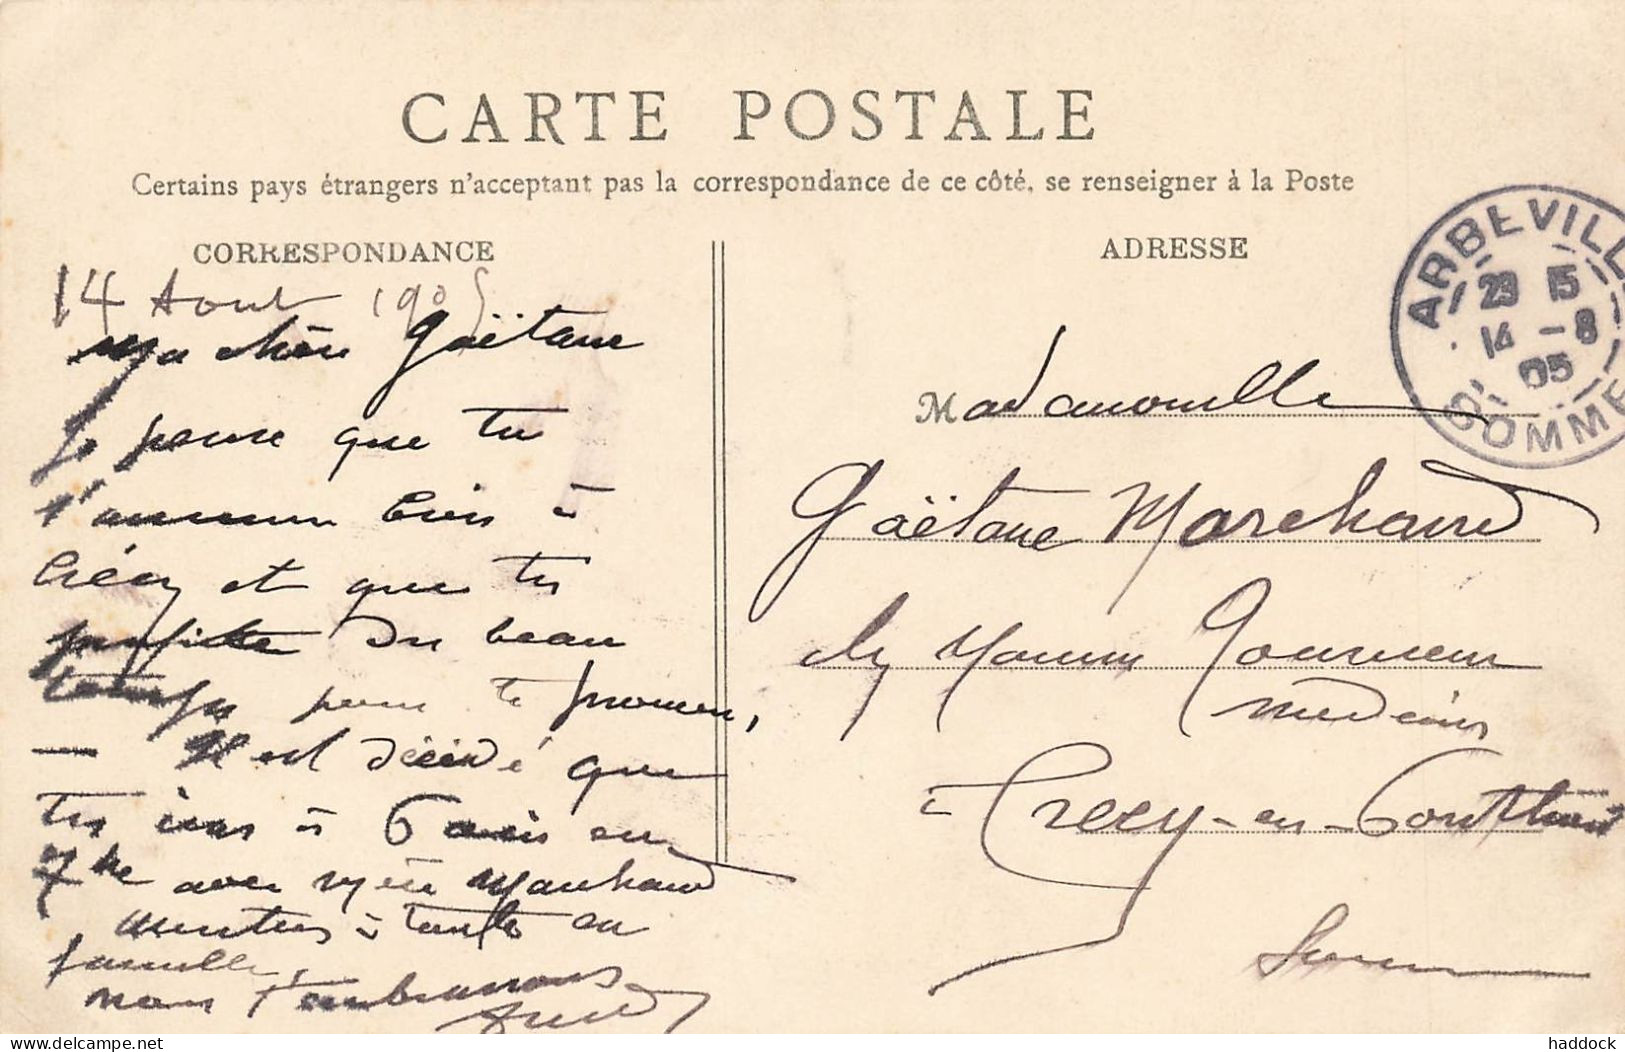 CARTE POSTALE
Certains pays étrangers n'acceptant pas la correspondance de ce côté, se renseigner à la Poste
CORRESPONDANCE
14 Aout 1905
Ma chère Gaëtane
Je pense que tu
t'amuses bien à
Crécy et que tu
profites du beau
temps pour te promener,
— Il est décidé que
tu iras à Paris en
7bre avec Mère Marchand
à tante en
famille
nous t'embrassons
ADRESSE
ABBEVILLE
23 15
14 -8
05
SOMME
Mademoiselle
Gaëtane Marchand
chez
médecin
à Crécy-en-Ponthieu
Somme
delcampe.net
haddock